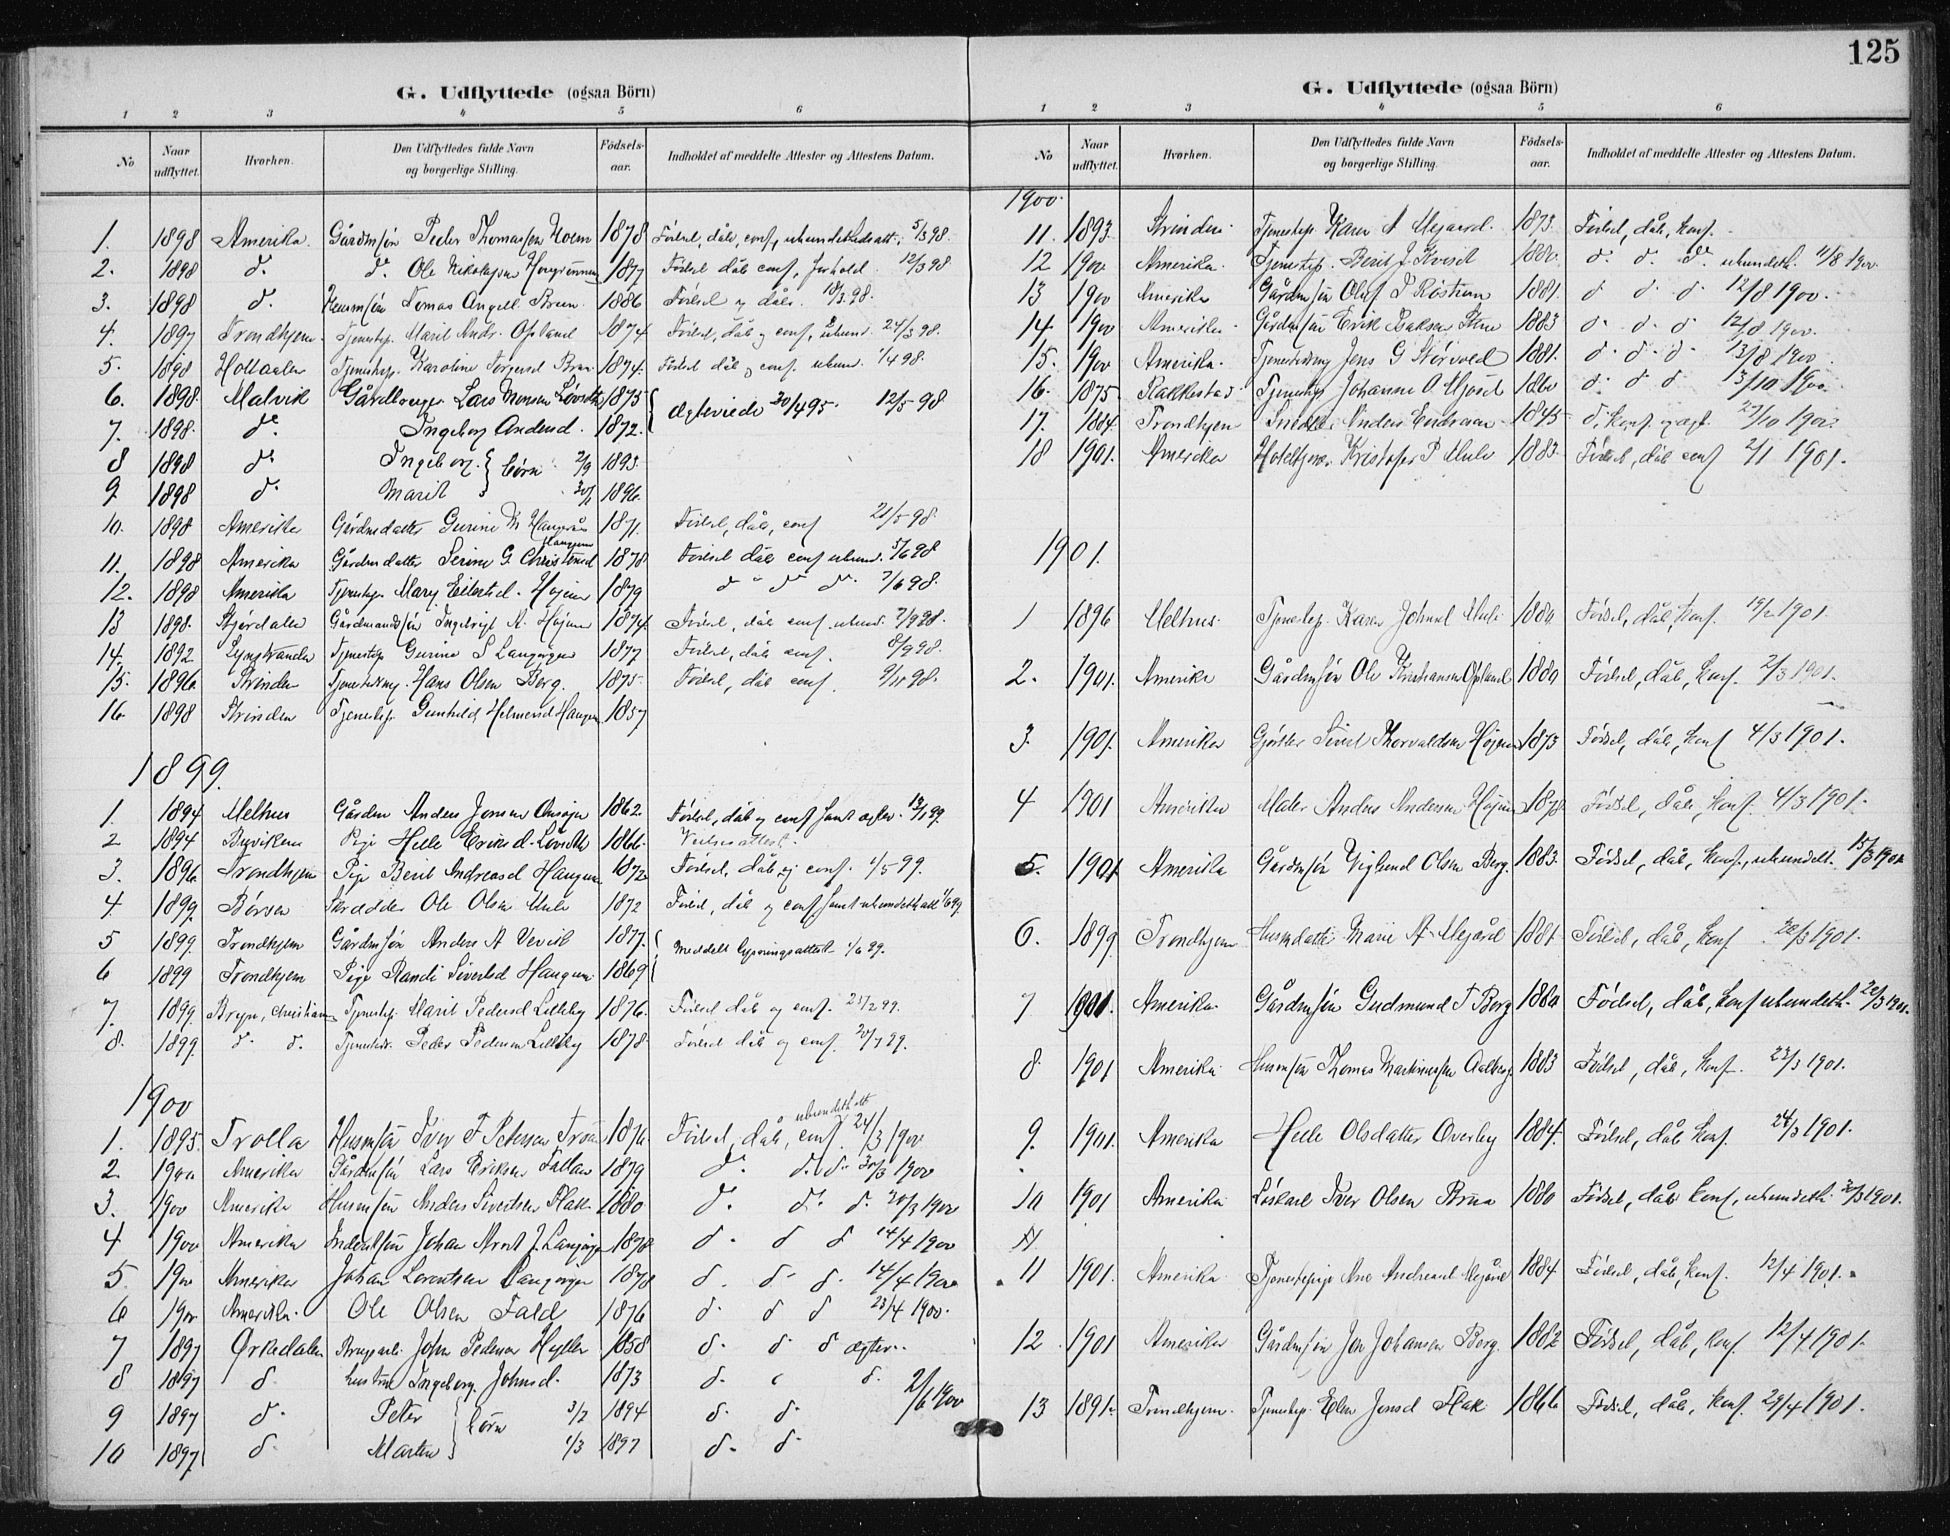 125
G. Udflyttede (ogsaa Börn)
1 2 3 4 5 6
No Naar udflyttet. Hvorhen. Den Udflyttedes fulde Navn og borgerlige Stilling. Födselsaar. Indholdet af meddelte Attester og Attestens Datum.
1. 1898 Amerika. Gårdmsön Peder Thomassen Hoem 1878 Födsel, dåb, conf, 5/3 98.
2. 1898 do. do. Ole Nikolajsen 1877 Födsel dåb conf, forhold. 12/3 98
3. 1898 do. Husmsön Tomas Angell Bruun 1886 Födsel og dåb. 18/3 98.
4. 1897 Trondhjem Tjenestep. Marit Andr. Opland 1874 Födsel, dåb og conf, ubund. 24/3 98.
5. 1898 Holtaalen Tjenestep. Karoline 1874. Födsel dåb og conf. ubund. 1/4 98.
6. 1898. Malvik Gårdbruger Lars Monsen Løvseth 1873 Ægteviede 30/4 95. 12/5 98
7. 1898. do. Ingeborg Andersd. 1872.
8 1898 do. Ingeborg } börn 2/9 1893.
9. 1898 do. Marit 1896.
10. 1898 Amerika Gårdmdatter Gurine M Haugum 1871. Födsel, dåb, conf 21/5 98.
11. 1898 Amerika Gårdmdatter Serine G. Christensd Haugum 1878 Födsel dåb conf ubund. 5/6 98
12. 1898 Amerika Tjenestep. Mary Eilertsd. Højem 1879 do do do. 7/6 98.
13 1898. Stjørdalen Gårdmandssön Ingebrigt A. Højem 1874. Födsel, dåb conf. ubund. 7/9 98.
14. 1892. Tjenestep Gurine S Langørgen 1877 Födsel, dåb conf. 8/9 98.
15. 1896. Strinden Tjenestedreng. Hans Olsen Berg. 1875. Födsel, dåb conf. 9/11 98.
16 1898 Strinden Tjenestep. Gunhild Helmersd Haugum 1857
1899.
1. 1894 Melhus Gårdm Anders Jonsen 1862. Födsel, dåb og conf samt ægtev. 13/1 99.
2 1894 Buviken Pige Helle Eriksd. Løvseth 1866. Vielsesattest.
3. 1896 Trondhjem Pige Berit Andreasd Haugum 1872 Födsel, dåb og conf. 1/5 99.
4. 1899. Börsen Skrædder Ole Olsen Mule 1872 Födsel, dåb og conf samt ubundethatt 1/6 99.
5 1899. Trondhjem Gårdmsön Anders A Vevik 1877. Meddelt lysningsattest 1/6 99.
6 1899 Trondhjem Pige Randi Sivertsd Haugum. 1869
7. 1899. Bryn, Christiania Tjenestep. Marit Pedersd Lilleby 1876. Födsel dåb og conf. 29.
8. 1899. do. do. Tjenestedr. Peder Pedersen Lilleby 1878. Födsel dåb og conf. 20/7 99.
1900
1. 1895. Trolla Husmsön Iver T. Petersen 1876. Födsel, dåb, conf. o ubundethatt 24/3 1900
2. 1900 Amerika Gårdmsön Lars Eriksen 1879 do. do. do. 30/3 1900
3. 1900 Amerika Husmsön Anders Sivertsen Flak 1880 do. do. do. 30/3 1900
4 1900 Amerika Inderstsön Johan Arnt J. Langørgen 1878 do. do do 14/4 1900
5. 1900 Amerika Johan Lorentsen Langørgen 1878 do. do. do. 14/4 1900
6 1900 Amerika. Ole Olsen Fald 1876 do. do do 23/4 1900.
7 1897 Örkedalen John Pedersen 1858 do. do do ægtev.
8 1897 do. hustru Ingeborg Johnsd. 1873 do. do. 2/6 1900
9 1897 do. Peter } börn 3/2 1894 do. do.
10 1897. do. Marten 1/3 1897 do. do.
G. Udflyttede (ogsaa Börn)
1 2 3 4 5 6
No Naar udflyttet. Hvorhen. Den Udflyttedes fulde Navn og borgerlige Stilling. Födselsaar. Indholdet af meddelte Attester og Attestens Datum.
1900.
11. 1893. Strinden. Tjenestep. Karen A Mejaard. 1873. Födsel, dåb, konf.
12 1900 Amerika. Tjenestep. Berit J. Kvisel 1880. do. do. do. ubundeth. 11/8 1900.
13 1900 Amerika Gårdmsön Oluf P. Röstum 1881. do do do 12/8 1900.
14. 1900 Amerika. Gårdmsön Erik Isaksen 1883 do. do. do 12/8 1900.
15. 1900 Amerika. Tjenestedreng Jens G. 1881. do. do. do. 13/8 1900
16. 1875 Rakkestad Tjenestep. Johanne O. 1860 do. do do 13/10 1900.
17. 1884. Trondhjem Anders 1845 do, konf. og ægt. 29/10 1900.
18 1901. Amerika Kristofer P Mule 1883. Födsel, dåb conf 2/1 1901.
1901.
1 1896 Melhus. Tjenestep. Karen Johnsd Mule 1880 Födsel, dåb, konf. 19/2 1901.
2. 1901. Amerika Gårdmsön Ole Kristiansen Opland 1880 Födsel, dåb, konf. 2/3 1901.
3. 1901. Amerika Gjörtler Sivert Thorvaldsen Højem 1873 Födsel, dåb, konf 4/3 1901.
4 1901 Amerika Maler Anders Andersen Højem 1878. Födsel, dåb, konf. 4/3 1901.
5. 1901 Amerika Gårdmsön Viglund Olsen Berg. 1883. Födsel, dåb, konf., ubundeth. 15/3 1901
6. 1899. Trondhjem Husmdatter Marie A Mejård 1881. Födsel, dåb, konf 20/3 1901.
7 1901. Amerika. Gårdmsön Gudmund T Berg 1880 Födsel, dåb, konf ubundeth. 22/3 1901.
8. 1901 Amerika. Husmsön Thomas Martinussen Aalberg 1883 Födsel, dåb, konf. 23/3 1901.
9. 1901. Amerika Helle Olsdatter Overby 1884. Födsel, dåb konf. 24/3 1901.
10 1901 Amerika Löskarl Iver Olsen Bruu 1880 Födsel, dåb konf, ubundeth. 30/3 1901.
11
11 1901. Amerika. Tjenestepige Ane Andreasd Mejård 1884. Födsel, dåb, konf. 12/4 1901.
12 1901 Amerika Gårdmsön Jon Johansen Berg. 1882 Födsel, dåb, konf. 12/4 1901.
13 1891. Trondhjem. Tjenestep. Ellen Jonsd Flak. 1866 Födsel, dåb, konf. 29/4 1901.